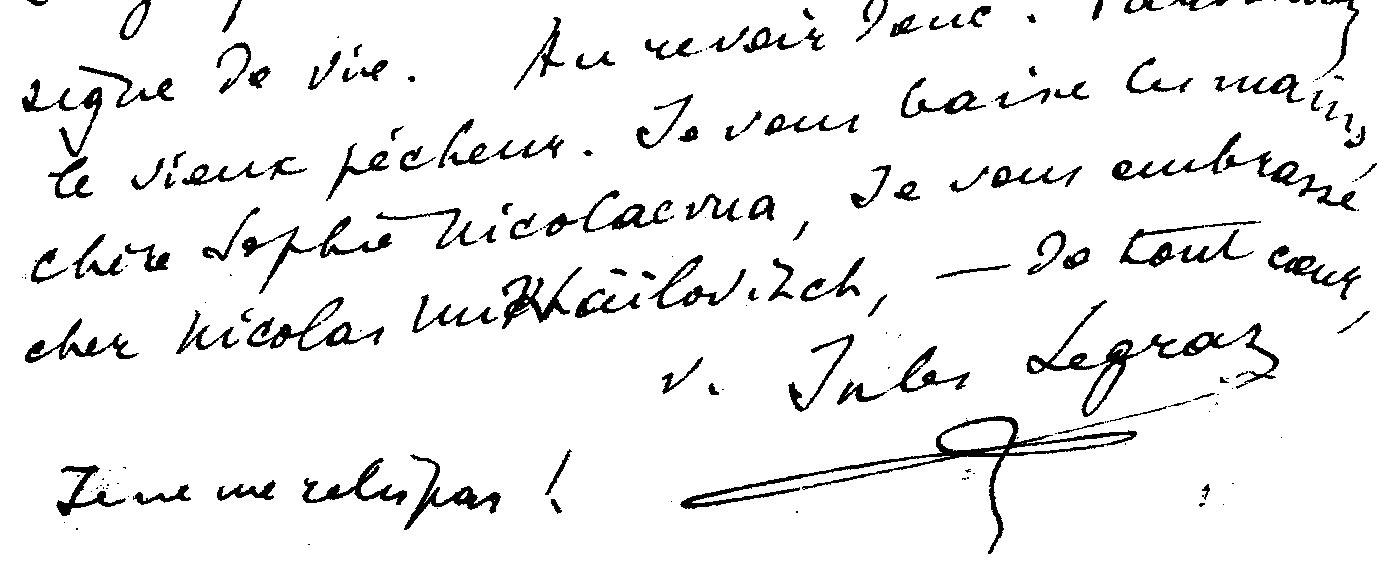 signe de vie. Au revoir donc. Pardonnez
le vieux pécheur. Je vous baise les mains,
chère Sophie Nicolaevna, Je vous embrasse
cher Nicolas Mikhaïlovitch, — de tout cœur,
v. Jules Legras
Je ne me relis pas !